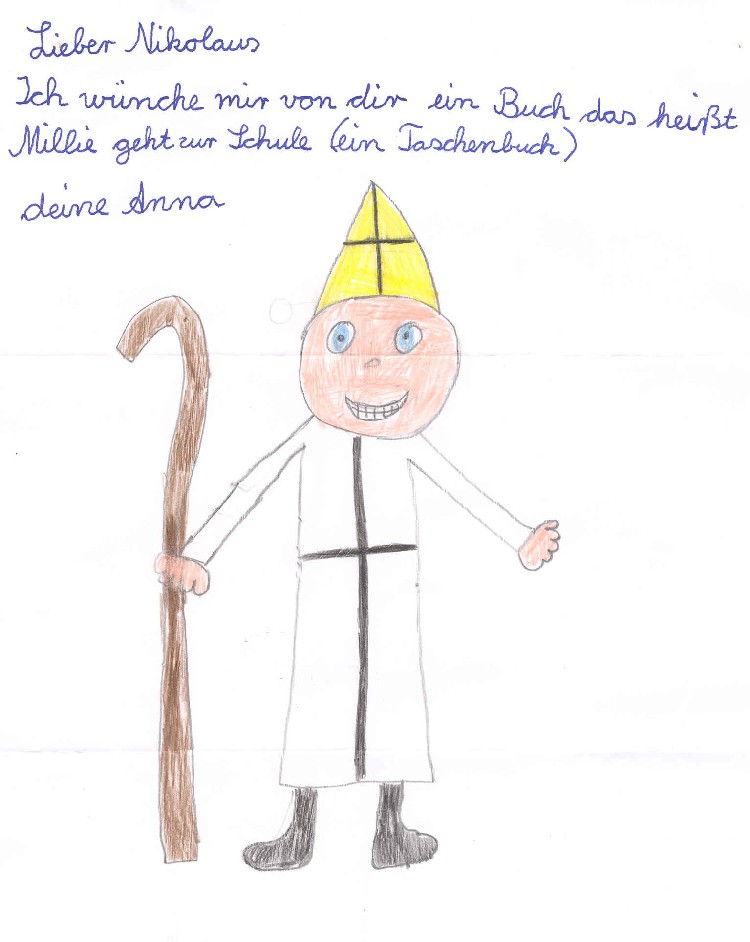 Lieber Nikolaus
Ich wünche mir von dir ein Buch das heißt
Millie geht zur Schule (ein Taschenbuch)
deine Anna